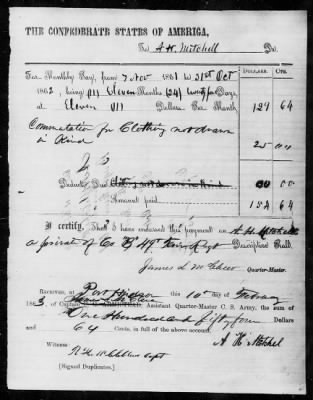 THE CONFEDERATE STATES OF AMERICA,
To A H Mitchell Dr.
DOLLARS. CTS.
For Monthly Pay, from 7 Nov 1861 to 31st Oct
1862, being (11) Eleven Months (24) twenty four Days,
at Eleven (11) Dollars Per Month, 129 64
Commutation for Clothing not drawn
in Kind 25 00
Deduct Due Clothing not drawn in Kind 00 00
Amount paid 154 64
I certify, That I have indorsed this payment on A H Mitchell
a private of Co 49 Regt Descriptive Roll.
James L Quarter-Master.
RECEIVED, at Port Hudson this 10th day of February
1863, of Captain Assistant Quarter-Master C. S. Army, the sum of
One Hundred and fifty four Dollars
and 64 Cents, in full of the above account.
A H Mitchel
Witness:
Capt
[Signed Duplicates.]